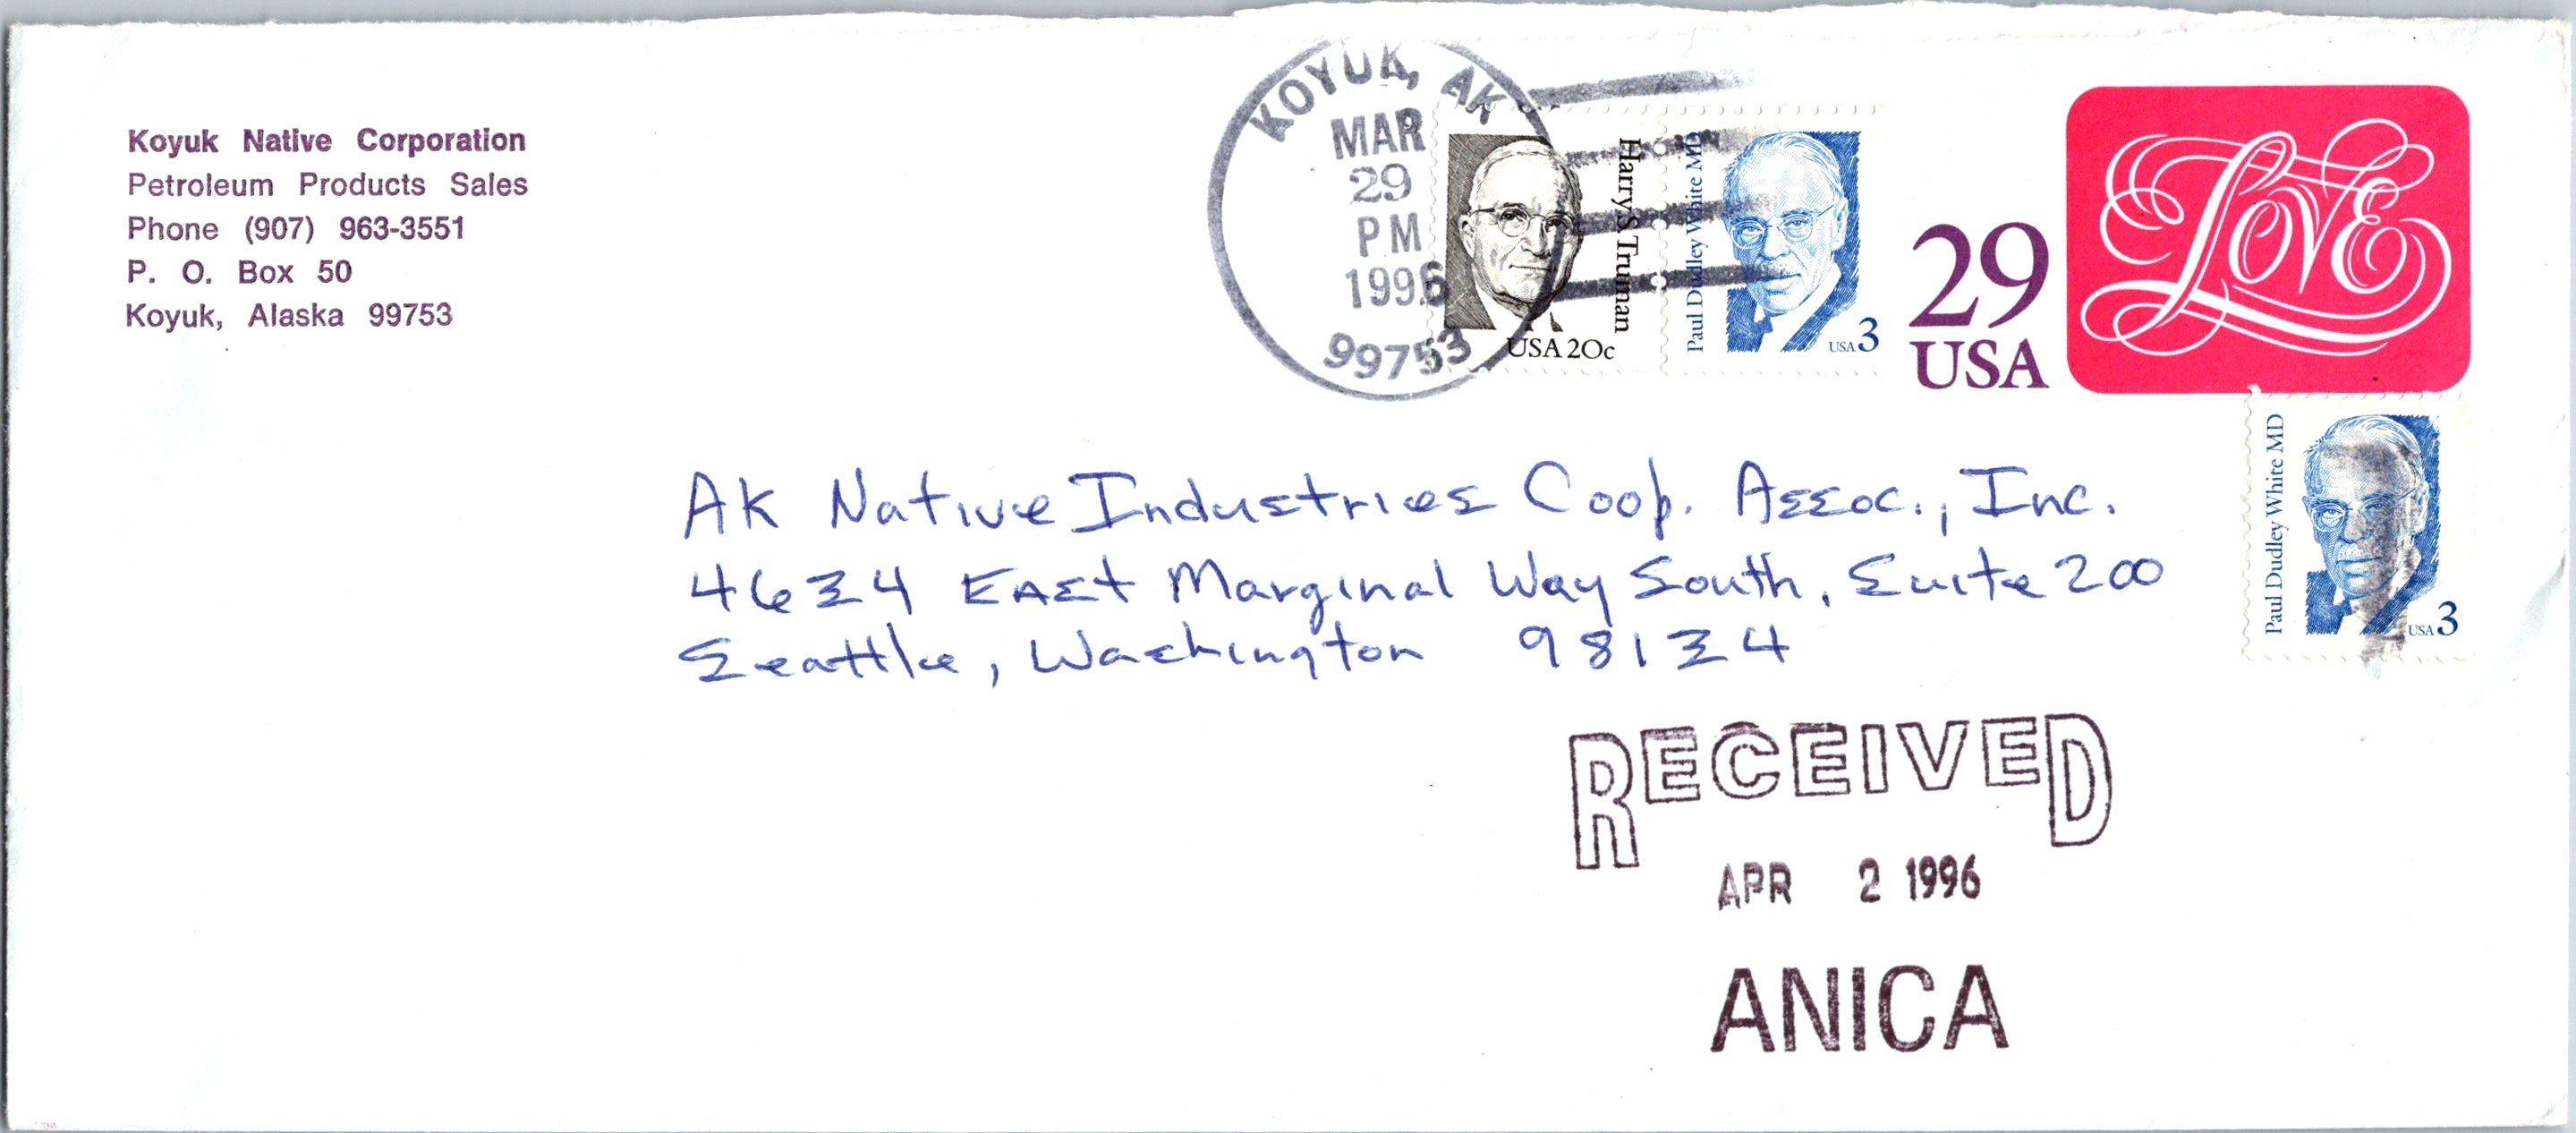 Koyuk Native Corporation
Petroleum Products Sales
Phone (907) 963-3551
P. O. Box 50
Koyuk, Alaska 99753
KOYUK, AK
MAR
29
PM
1996
99753
Harry S. Truman
USA 20c
Paul Dudley White MD
USA 3
29
USA
LOVE
Paul Dudley White MD
USA 3
AK Native Industries Coop. Assoc., Inc.
4634 East Marginal Way South, Suite 200
Seattle, Washington 98134
RECEIVED
APR 2 1996
ANICA